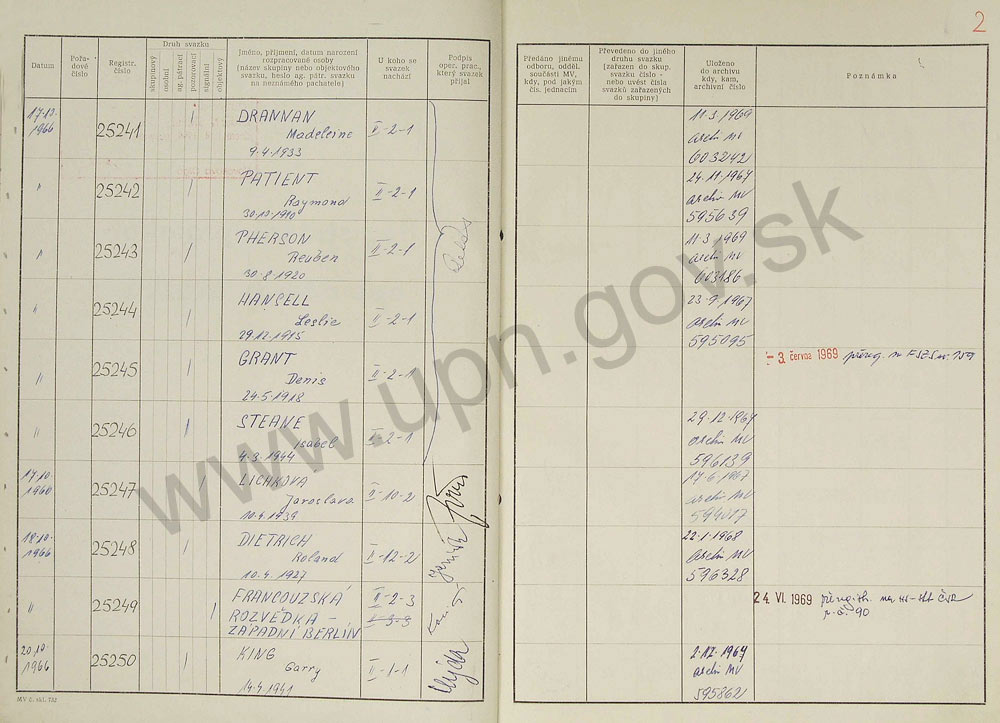 2
Datum
Pořa-
dové
číslo
Registr.
číslo
Druh svazku
skupinový
osobní
ag. pátrací
pozorovací
signální
objektový
Jméno, příjmení, datum narození
rozpracované osoby
(název skupiny nebo objektového
svazku, heslo ag. pátr. svazku
na neznámého pachatele)
U koho se
svazek
nachází
Podpis
oper. prac.,
který svazek
přijal
Předáno jinému
odboru, odděl.
součásti MV,
kdy, pod jakým
čís. jednacím
Převedeno do jiného
druhu svazku
(zařazen do skup.
svazku číslo -
nebo uvést čísla
svazků zařazených
do skupiny)
Uloženo
do archivu
kdy, kam,
archivní číslo
Poznámka
17.10.
1966
25241
DRANNAN
Madeleine
9.4.1933
II-2-1
11.3.1969
archiv MV
603242
"
25242
PATIENT
Raymond
30.10.1910
II-2-1
24.11.1967
archiv MV
595639
"
25243
PHERSON
Reuben
30.8.1920
II-2-1
11.3.1969
archiv MV
603186
"
25244
HANSELL
Leslie
29.12.1915
II-2-1
23.9.1967
archiv MV
595095
"
25245
GRANT
Denis
24.5.1918
II-2-1
- 3. června 1969
"
25246
STEANE
Isabel
4.3.1944
II-2-1
29.12.1967
archiv MV
596139
17.10.
1966
25247
LICHKOVA
Jaroslava
10.4.1939
II-10-2
17.6.1967
archiv MV
594017
18.10.
1966
25248
DIETRICH
Roland
10.4.1927
II-12-2
22.1.1968
archiv MV
596328
"
25249
FRANCOUZSKÁ
ROZVĚDKA -
ZÁPADNÍ BERLÍN
II-2-3
II-3-3
24. VI. 1969
20.10.
1966
25250
KING
Garry
14.4.1941
II-1-1
2.12.1967
archiv MV
595862
MV č. skl. 752
www.upn.gov.sk